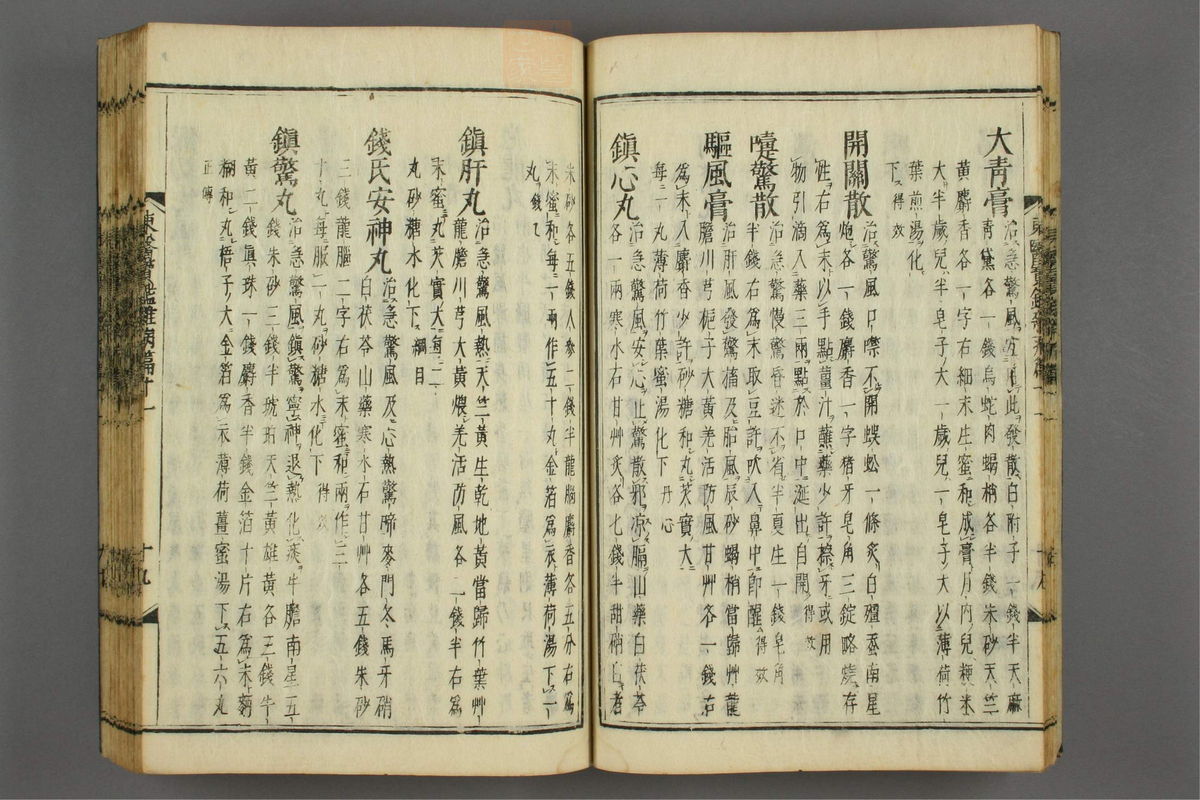 大青膏治急驚風先用此發散白附子一錢半天麻
青黛各一錢烏蛇肉蝎梢各半錢朱砂天竺
黃麝香各一字右細末生蜜和成膏月內兒粳米
大半歲兒半皂子大一歲兒一皂子大以薄荷竹
葉煎湯化
下得效
開關散治驚風口噤不開蜈蚣一條炙白殭蚕南星
炮各一錢麝香一字猪牙皂角三錠略燒存
性右為末以手點薑汁蘸藥少許擦牙或用
物引滴入藥三兩點於口中涎出自開得效
嚏驚散治急慢驚昏迷不省半夏生一錢皂角
半錢右為末取豆許吹入鼻中卽醒得效
驅風膏治肝風發搐及胎風辰砂蝎梢當歸艸龍
膽川芎梔子大黃羌活防風甘艸各一錢右
為末入麝香少許砂糖和丸芡實大
每一丸薄荷竹葉蜜湯化下丹心
鎭心丸治急驚風安心止驚散邪凉膈山藥白茯苓
各一兩寒水石甘艸炙各七錢半甜硝白者
朱砂各五錢人參二錢半龍腦麝香各五分右為
末蜜和每一兩作五十丸金箔為衣薄荷湯下一
丸錢乙
鎭肝丸治急驚風熱天竺黃生乾地黃當歸竹葉艸
龍膽川芎大黃煨羌活防風各二錢半右為
末蜜丸芡實大每二
丸砂糖水化下綱目
錢氏安神丸治急驚風及心熱驚啼麥門冬馬牙硝
白茯苓山藥寒水石甘艸各五錢朱砂
三錢龍腦一字右為末蜜和兩作三
十丸每服一丸砂糖水化下得效
鎭驚丸治急驚風鎭驚寧神退熱化痰牛膽南星五
錢朱砂三錢半琥珀天竺黃雄黃各三錢牛
黃二錢眞珠一錢麝香半錢金箔十片右為末麪
糊和丸梧子大金箔為衣薄荷薑蜜湯下五六丸
正傳
東醫寶鑑雜病篇十一
十九